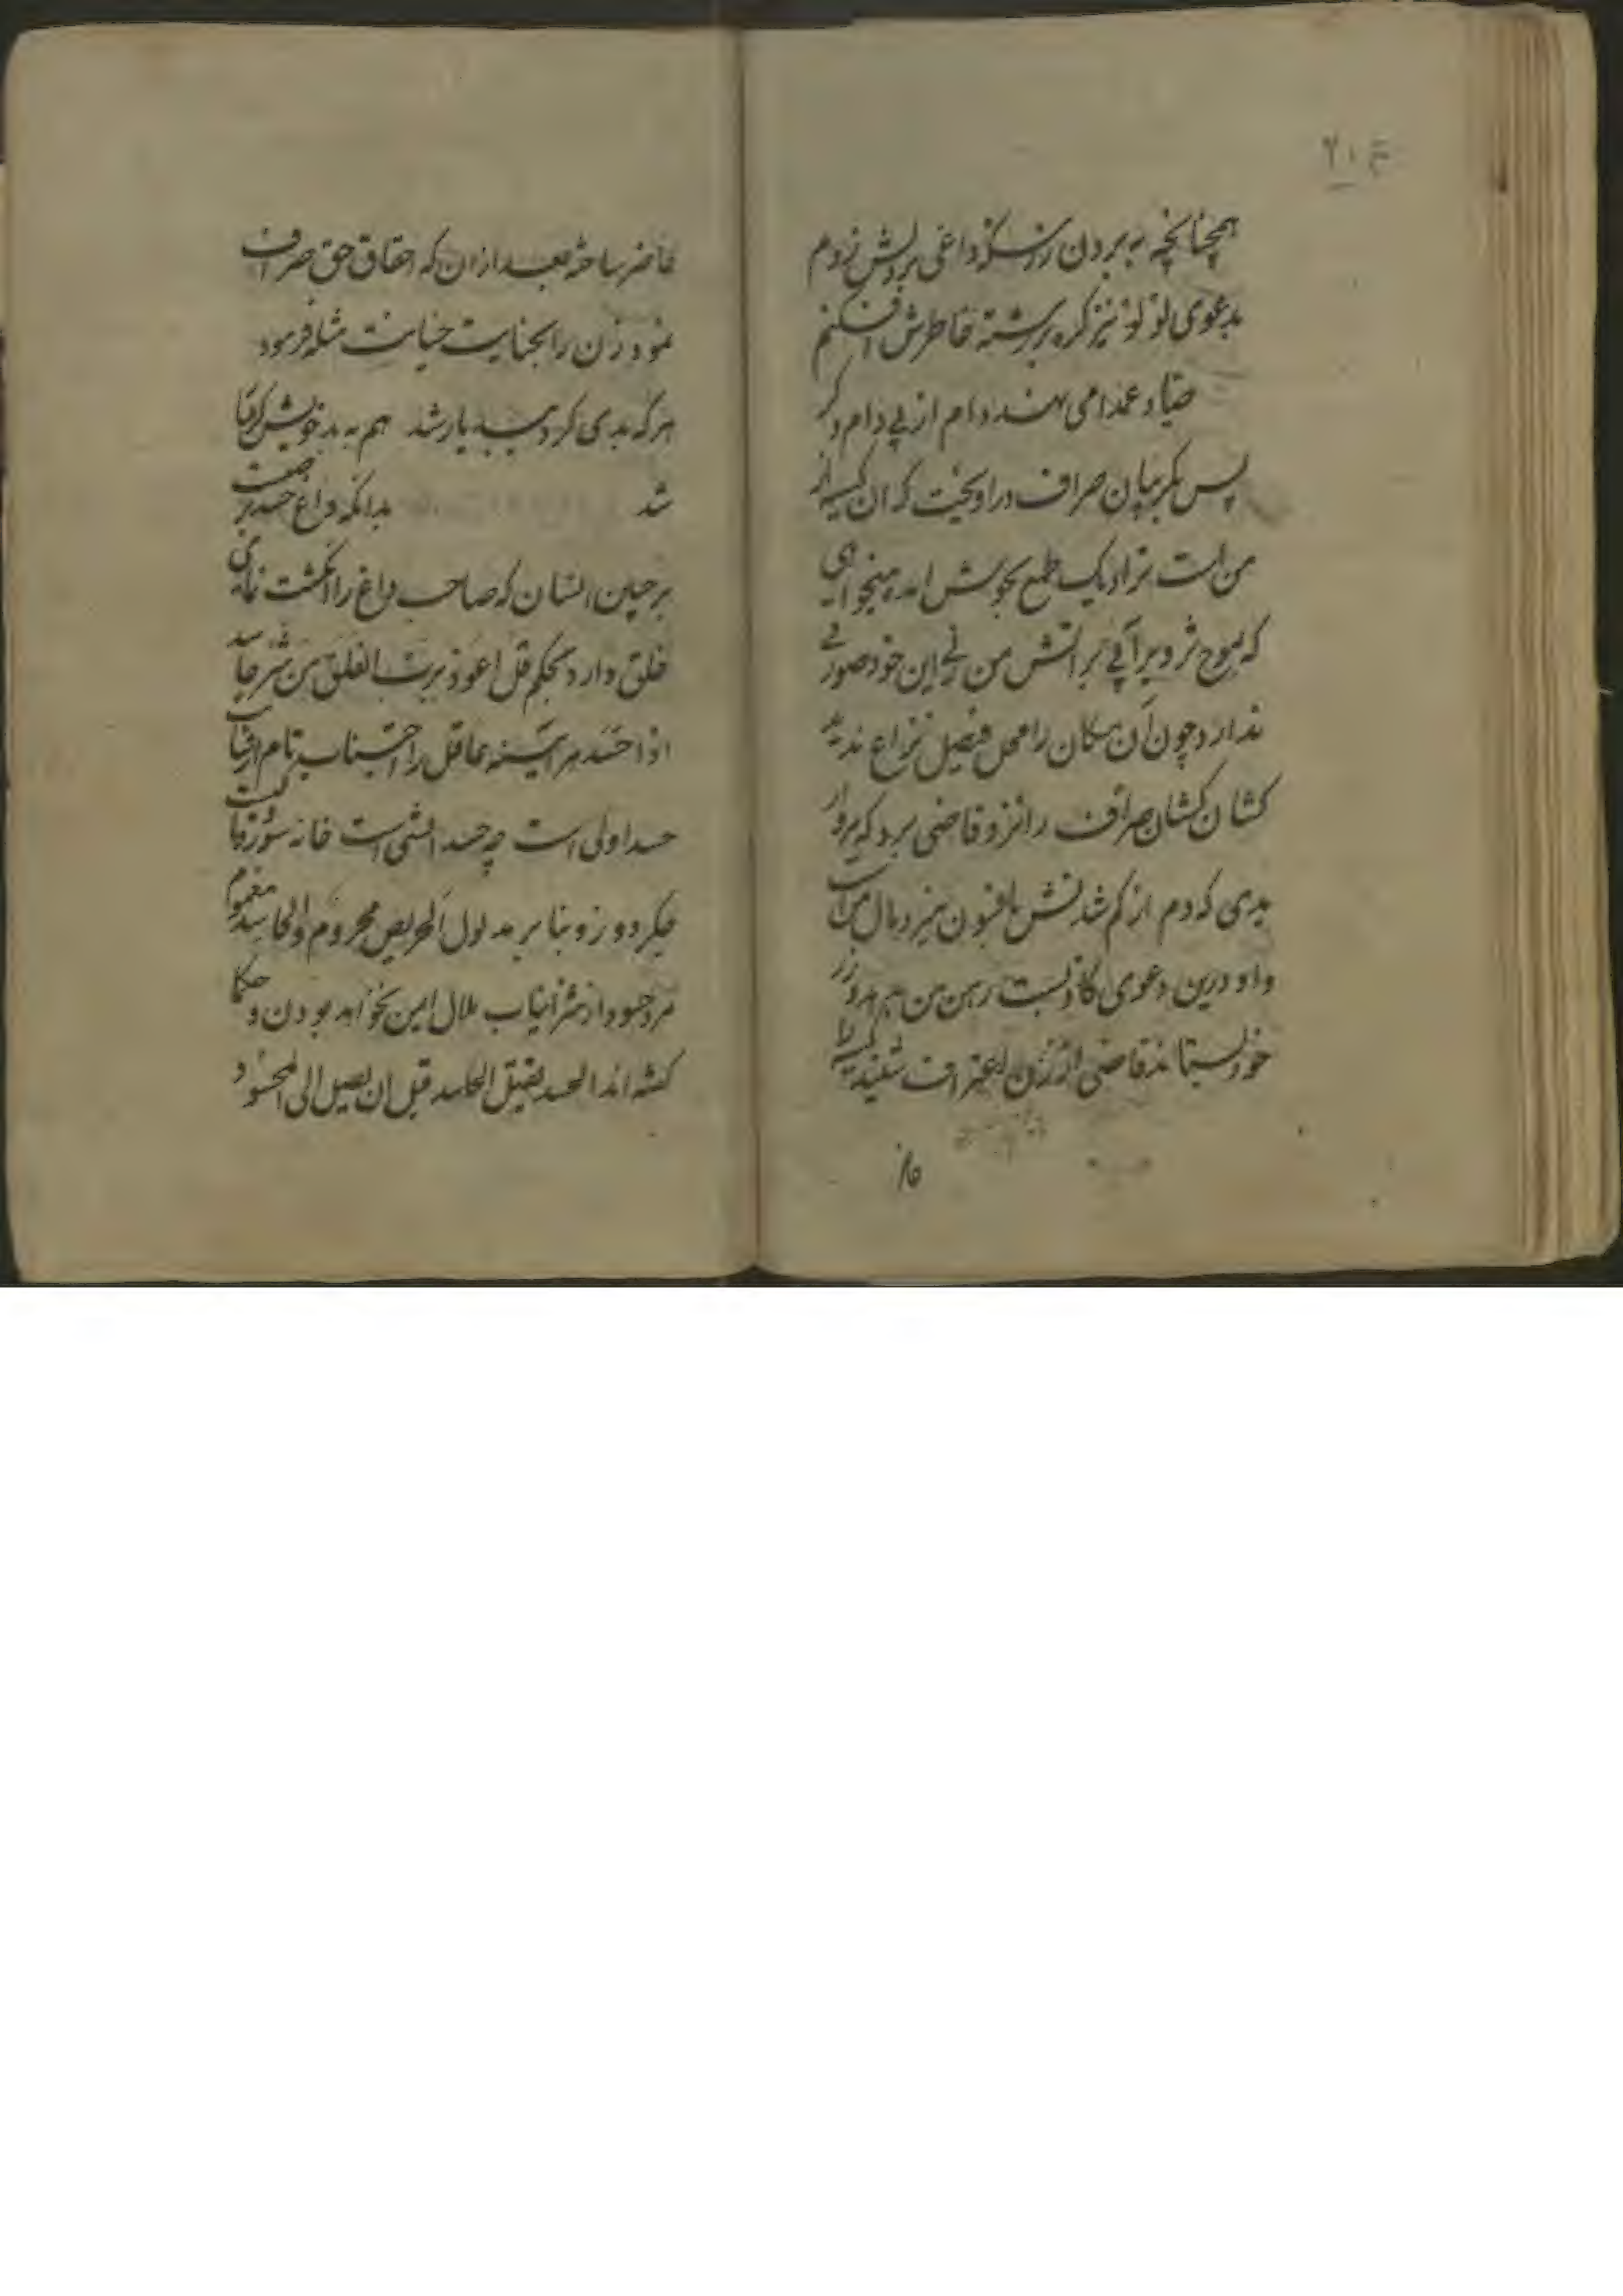 همچنانچه به بردن زر سکه داغی بر دلش زدم
بدعوی لولو نیز گره بر رشته خاطرش افکنم
صیاد عمدا می نهد دام از پی دام دگر
پس بگریبان صراف در اویخت که ان کیسه از
من است نزاد یک طمع بجوش امد میخواهی
که بموج تزویر آبی بر اتش من زنی این خود صورتی
ندارد چون آن مکان را محل فیصل نزاع ندید
کشان کشان صراف را نزد قاضی برد که پرواز
بدی که دم از کم شدنش بافسون میزد مال من است
واو درین دعوی کاذبست رهن من هم امروز
خود بستاند قاضی از زن اعتراف شنید کیسه را
حاضر
حاضر ساخته بعد ازان که احقاق حق صراف
نمود زن را بجنایت خیانت مثله فرمود
هر که بدی کرد ببد یار شد هم به بد خویش گرفتار
شد بدانکه داغ حسد بر صفت
بر جبین انسان که صاحب داغ را انگشت نمای
خلق دارد بحکم قل اعوذ برب الفلق من شر حاسد
اذا حسد هر آیینه عاقل را اجتناب تام از ارتکاب
حسد اولی است چه حسد اتشی است خانه سوز
جگر دوز و بنا بر مدلول الحریص محروم والحاسد مغموم
مرد حسود از شر انیاب ملال امین نخواهد بودن و حکما
گفته اند الحسد یقتل الحاسد قبل ان یصل الی المحسود